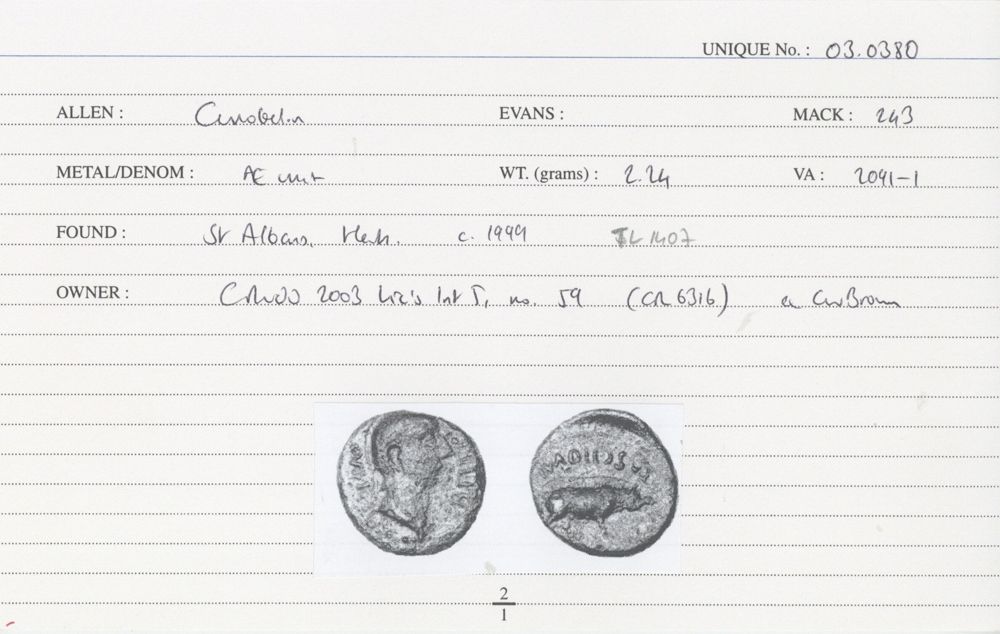 UNIQUE No. : 03.0380
ALLEN : Cunobelin EVANS : MACK : 243
METAL/DENOM : Æ unit WT. (grams) : 2.24 VA : 2091-1
FOUND : St Albans, Herts. c. 1999 TL 1407
OWNER : 2003 Liz's no. 59 (CR 6316)
2
1